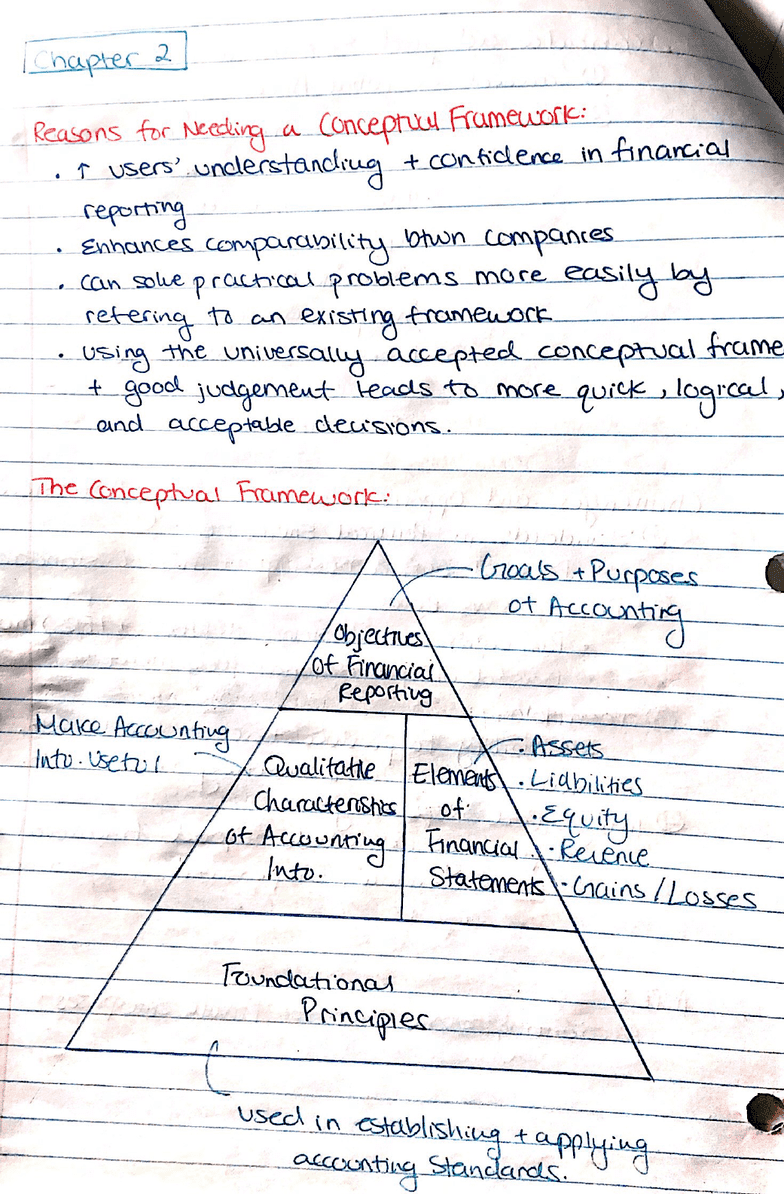 Chapter 2
Reasons for Needing a Conceptual Framework:
. ↑ users' understanding + confidence in financial
reporting
. Enhances comparability btwn companies
. can solve practical problems more easily by
refering to an existing framework
. using the universally accepted conceptual frame
+ good judgement leads to more quick, logical,
and acceptable decisions.
The Conceptual Framework:
Goals + Purposes
of Accounting
Objectives
of Financial
Reporting
Make Accounting
Info. Useful
Qualitative
Characteristics
of Accounting
Info.
Elements
of
Financial
Statements
. Assets
. Liabilities
. Equity
. Revenue
. Gains / Losses
Foundational
Principles
used in establishing + applying
accounting standards.